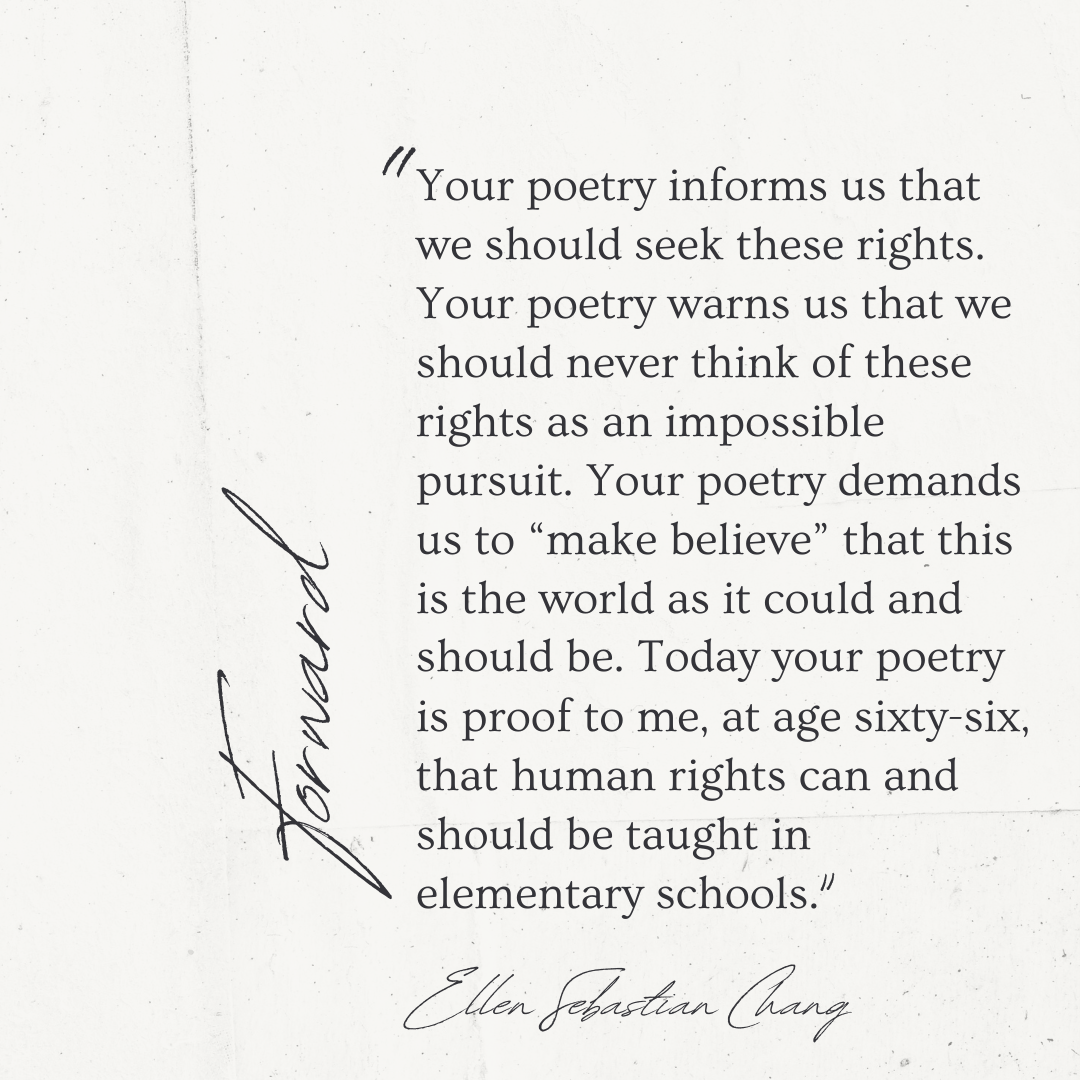 Forward
"Your poetry informs us that
we should seek these rights.
Your poetry warns us that we
should never think of these
rights as an impossible
pursuit. Your poetry demands
us to “make believe” that this
is the world as it could and
should be. Today your poetry
is proof to me, at age sixty-six,
that human rights can and
should be taught in
elementary schools."
Ellen Sebastian Chang